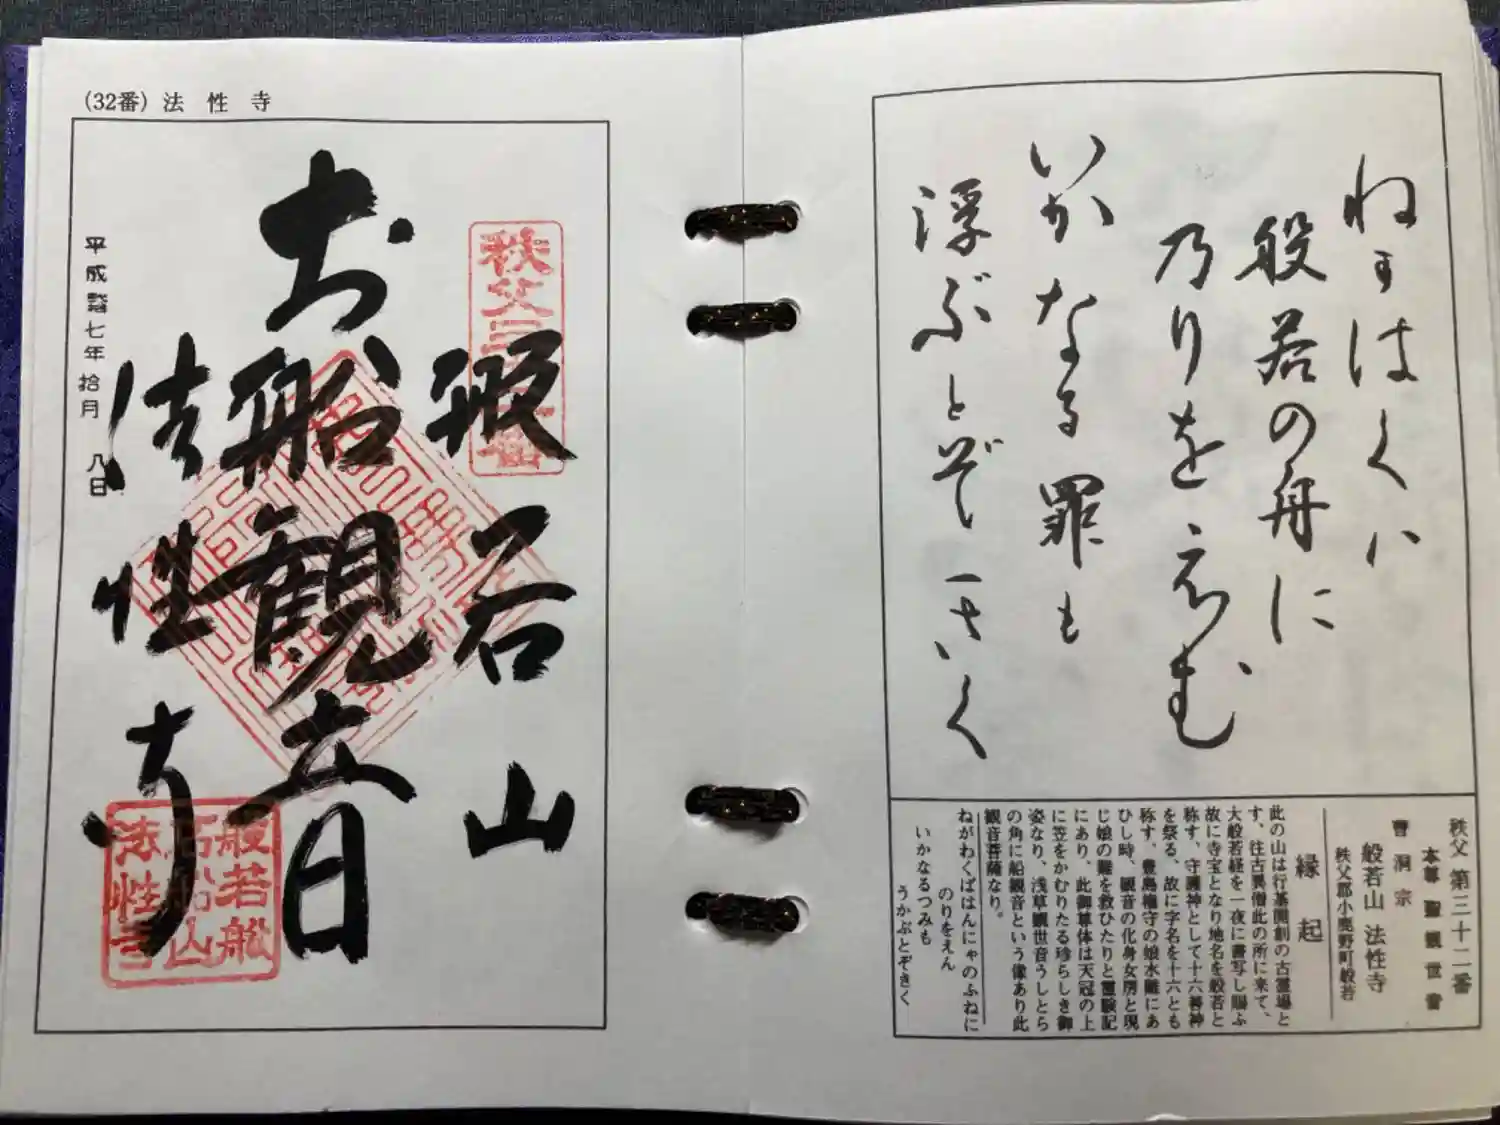 (32番) 法性寺
平成弐七年拾月 八日
般石山
お船観音
法性寺
般若船
石船山
法性寺
ねがはくハ
般若の舟に
乃りをえむ
いかなる罪も
浮ぶとぞきく
秩父 第三十二番
本尊 聖観世音
曹洞宗
般若山 法性寺
秩父郡小鹿野町般若
縁起
此の山は行基開創の古霊場と
す、往古異僧此の所に来て、
大般若経を一夜に書写し賜ふ
故に寺宝となり地名を般若と
称す、守護神として十六善神
を祭る、故に字名を十六とも
称す。豊島権守の娘水難にあ
ひし時、観音の化身女房と現
じ娘の難を救ひたりと霊験記
にあり、此御尊体は天冠の上
に笠をかむりたる珍らしき御
姿なり、浅草観世音うしとら
の角に船観音という像あり此
観音菩薩なり。
ねがわくばはんにゃのふねに
のりをえん
いかなるつみも
うかぶとぞきく